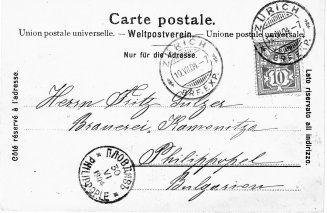 Carte postale.
Union postale universelle. — Weltpostverein. — Unione postale universale.
Nur für die Adresse.
Côté réservé à l'adresse.
Lato riservato all'indirizzo.
ZÜRICH
BRF.EXP.
ZÜRICH
10.VII.04.
BRF.EXP.
10
Herrn Fritz Sulzer
Brauerei Kamenitza
Philippopel
Bulgarien
ПЛОВДИВЪ
30
VI
1904
PHILIPPOPLE